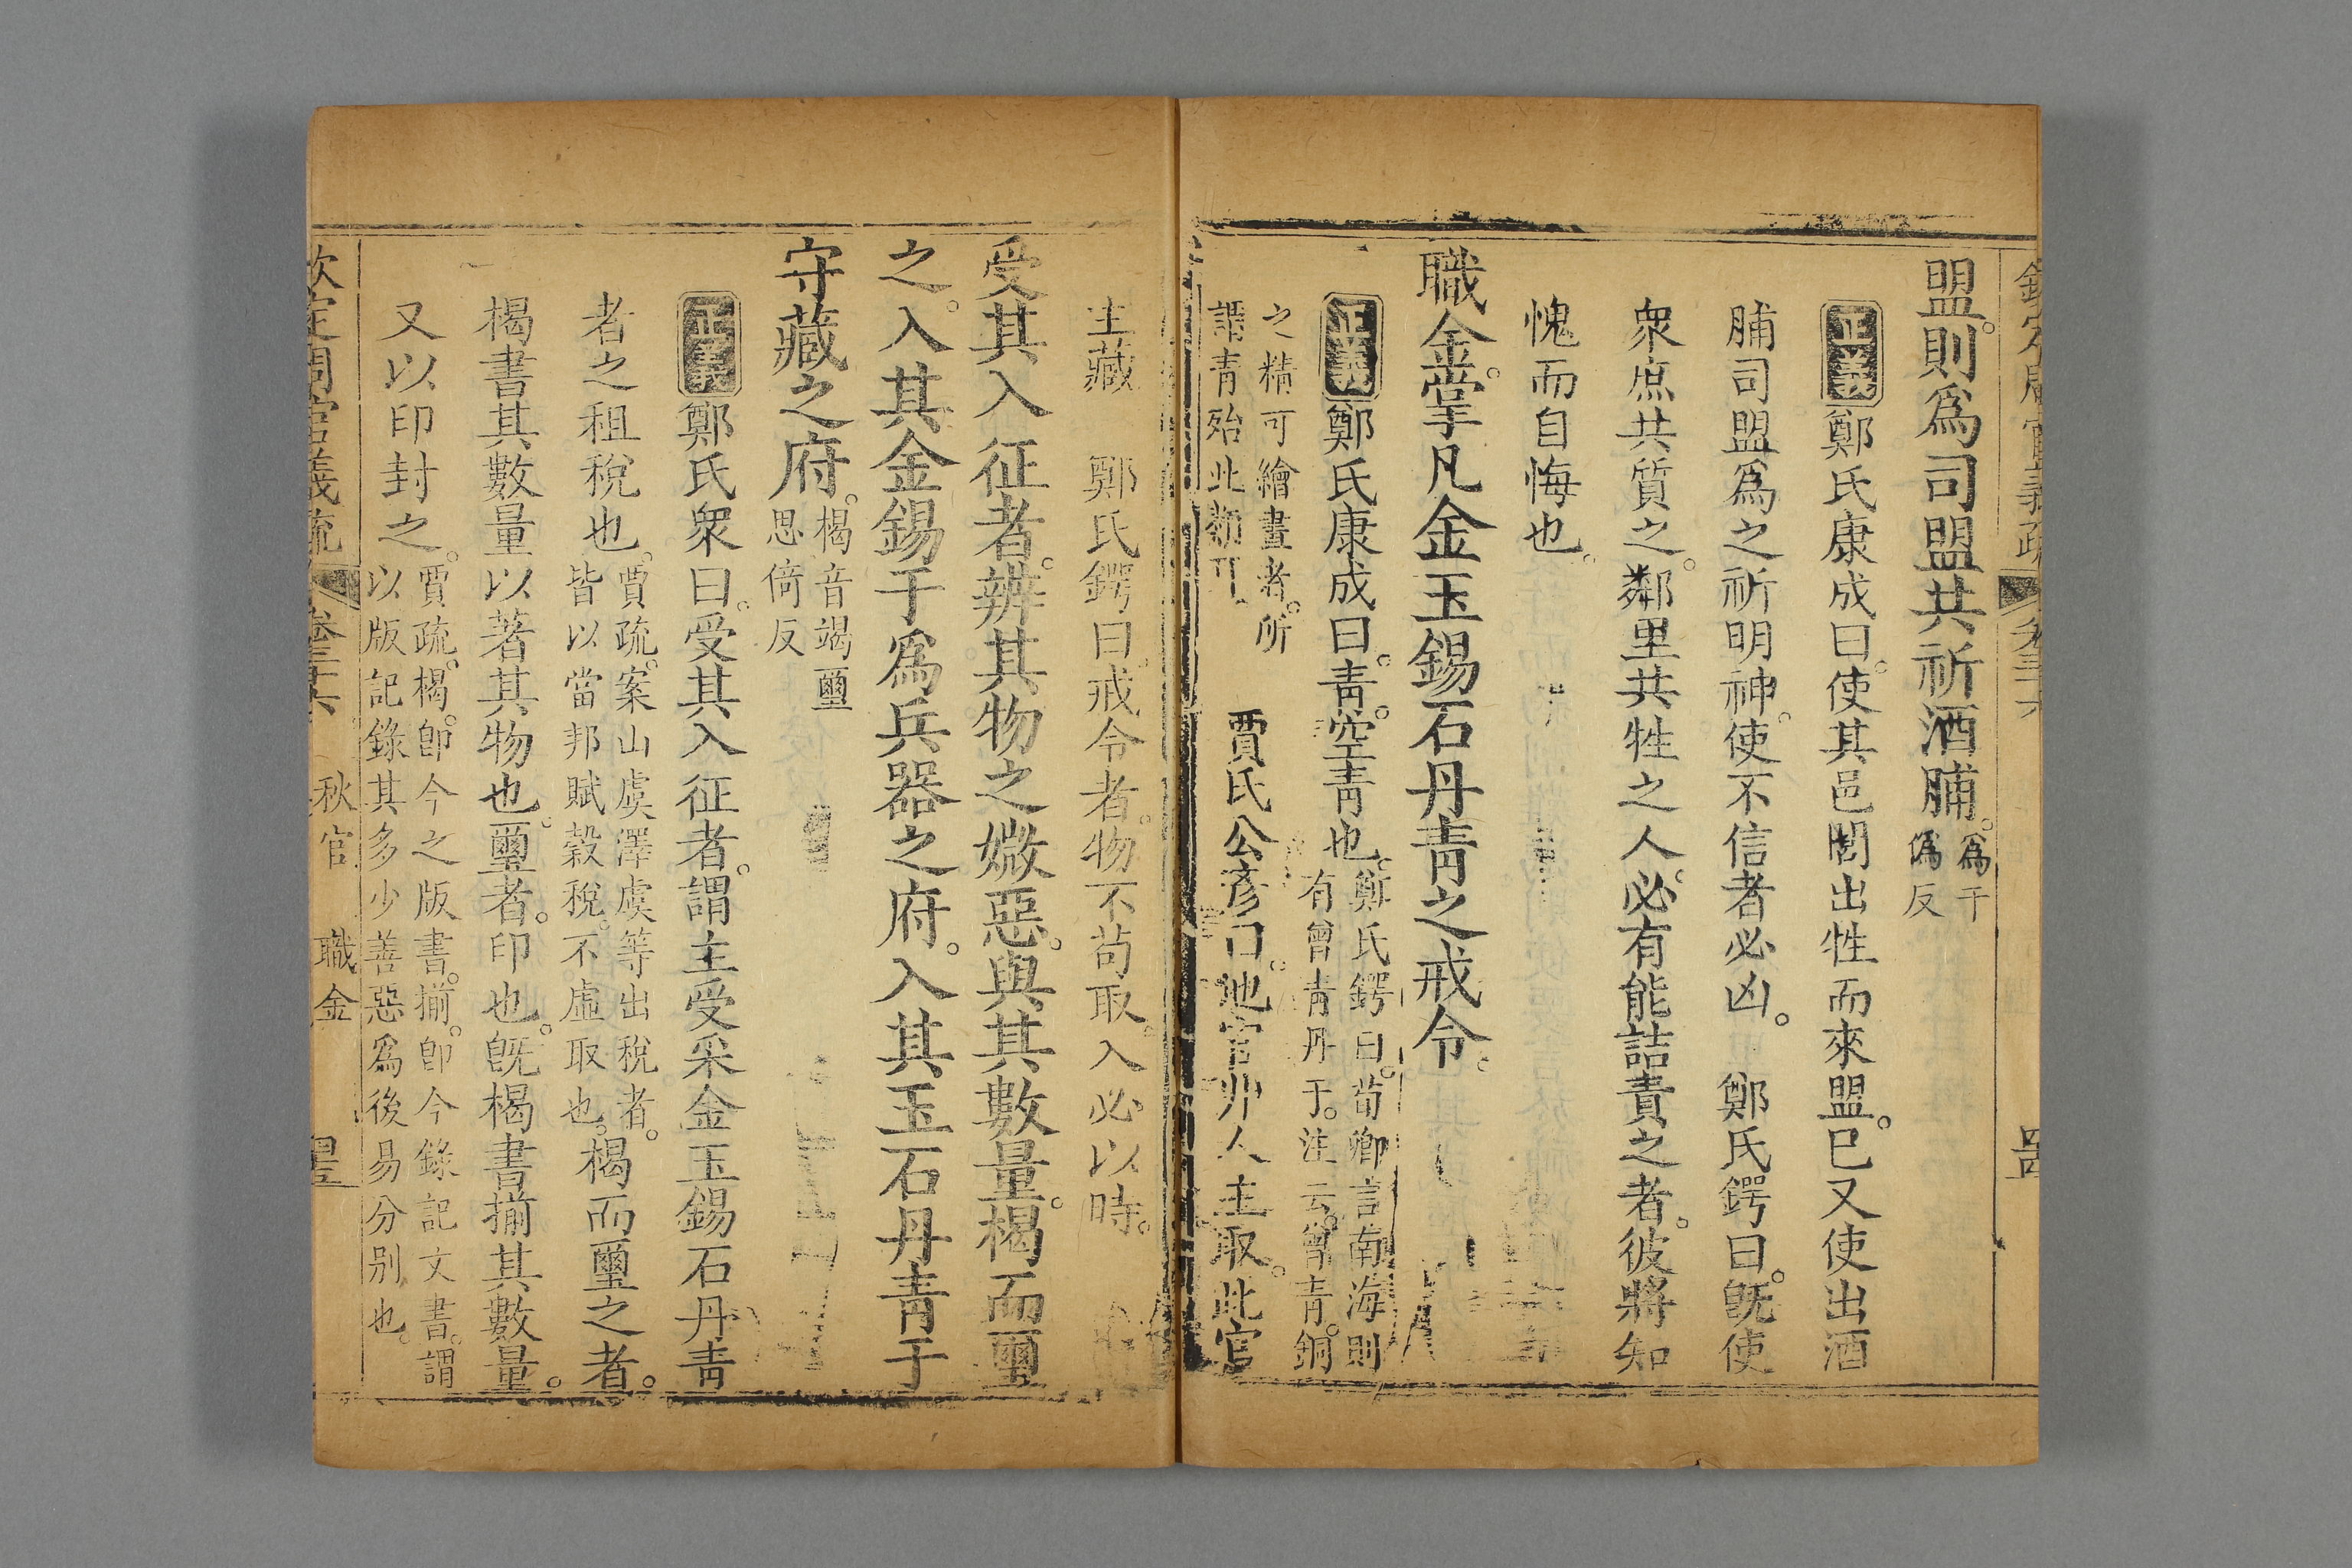 欽定周官義疏 卷三十六
盟。則爲司盟共祈酒脯。爲于
僞反
正義 鄭氏康成曰。使其邑閭出牲而來盟。巳又使出酒
脯司盟爲之祈明神。使不信者必凶。 鄭氏鍔曰。旣使
衆庶共質之。鄰里共牲之人。必有能詰責之者。彼將知
愧而自悔也。
職金。掌凡金玉錫石丹靑之戒令。
正義 鄭氏康成曰。靑。空靑也。鄭氏鍔曰。荀卿言南海則
有曾靑丹干。注云。曾靑。銅
之精可繪畫者。所
謂靑殆此類 賈氏公彥曰。地官丱人主取。此官
主藏 鄭氏鍔曰。戒令者。物不苟取。入必以時。
受其入征者。辨其物之媺惡。與其數量。楬而璽
之。入其金錫于爲兵器之府。入其玉石丹靑于
守藏之府。楬音竭璽
思倚反
正義 鄭氏衆曰。受其入征者。謂主受采金玉錫石丹靑
者之租稅也。賈疏。案山虞澤虞等出稅者。
皆以當邦賦穀稅。不虛取也。楬而璽之者。
楬書其數量以著其物也。璽者。印也。旣楬書揃其數量。
又以印封之。賈疏。楬。卽今之版書。揃。卽今錄記文書。謂
以版記錄其多少善惡爲後易分别也。
欽定周官義疏 卷三十六 秋官 職金